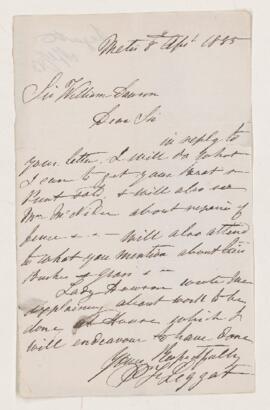 Metis 8 Apl 1885
Sir William Dawson
Dear Sir
in reply to
your letter, I will do what
I can to get your
& will also see
Mr about repairs of
fence & - will also attend
to what you mention about
& Grass & -
Lady Dawson wrote me
explaining about work to be
done at House which I
will endeavour to have done
Yours Respectfully
Leggat